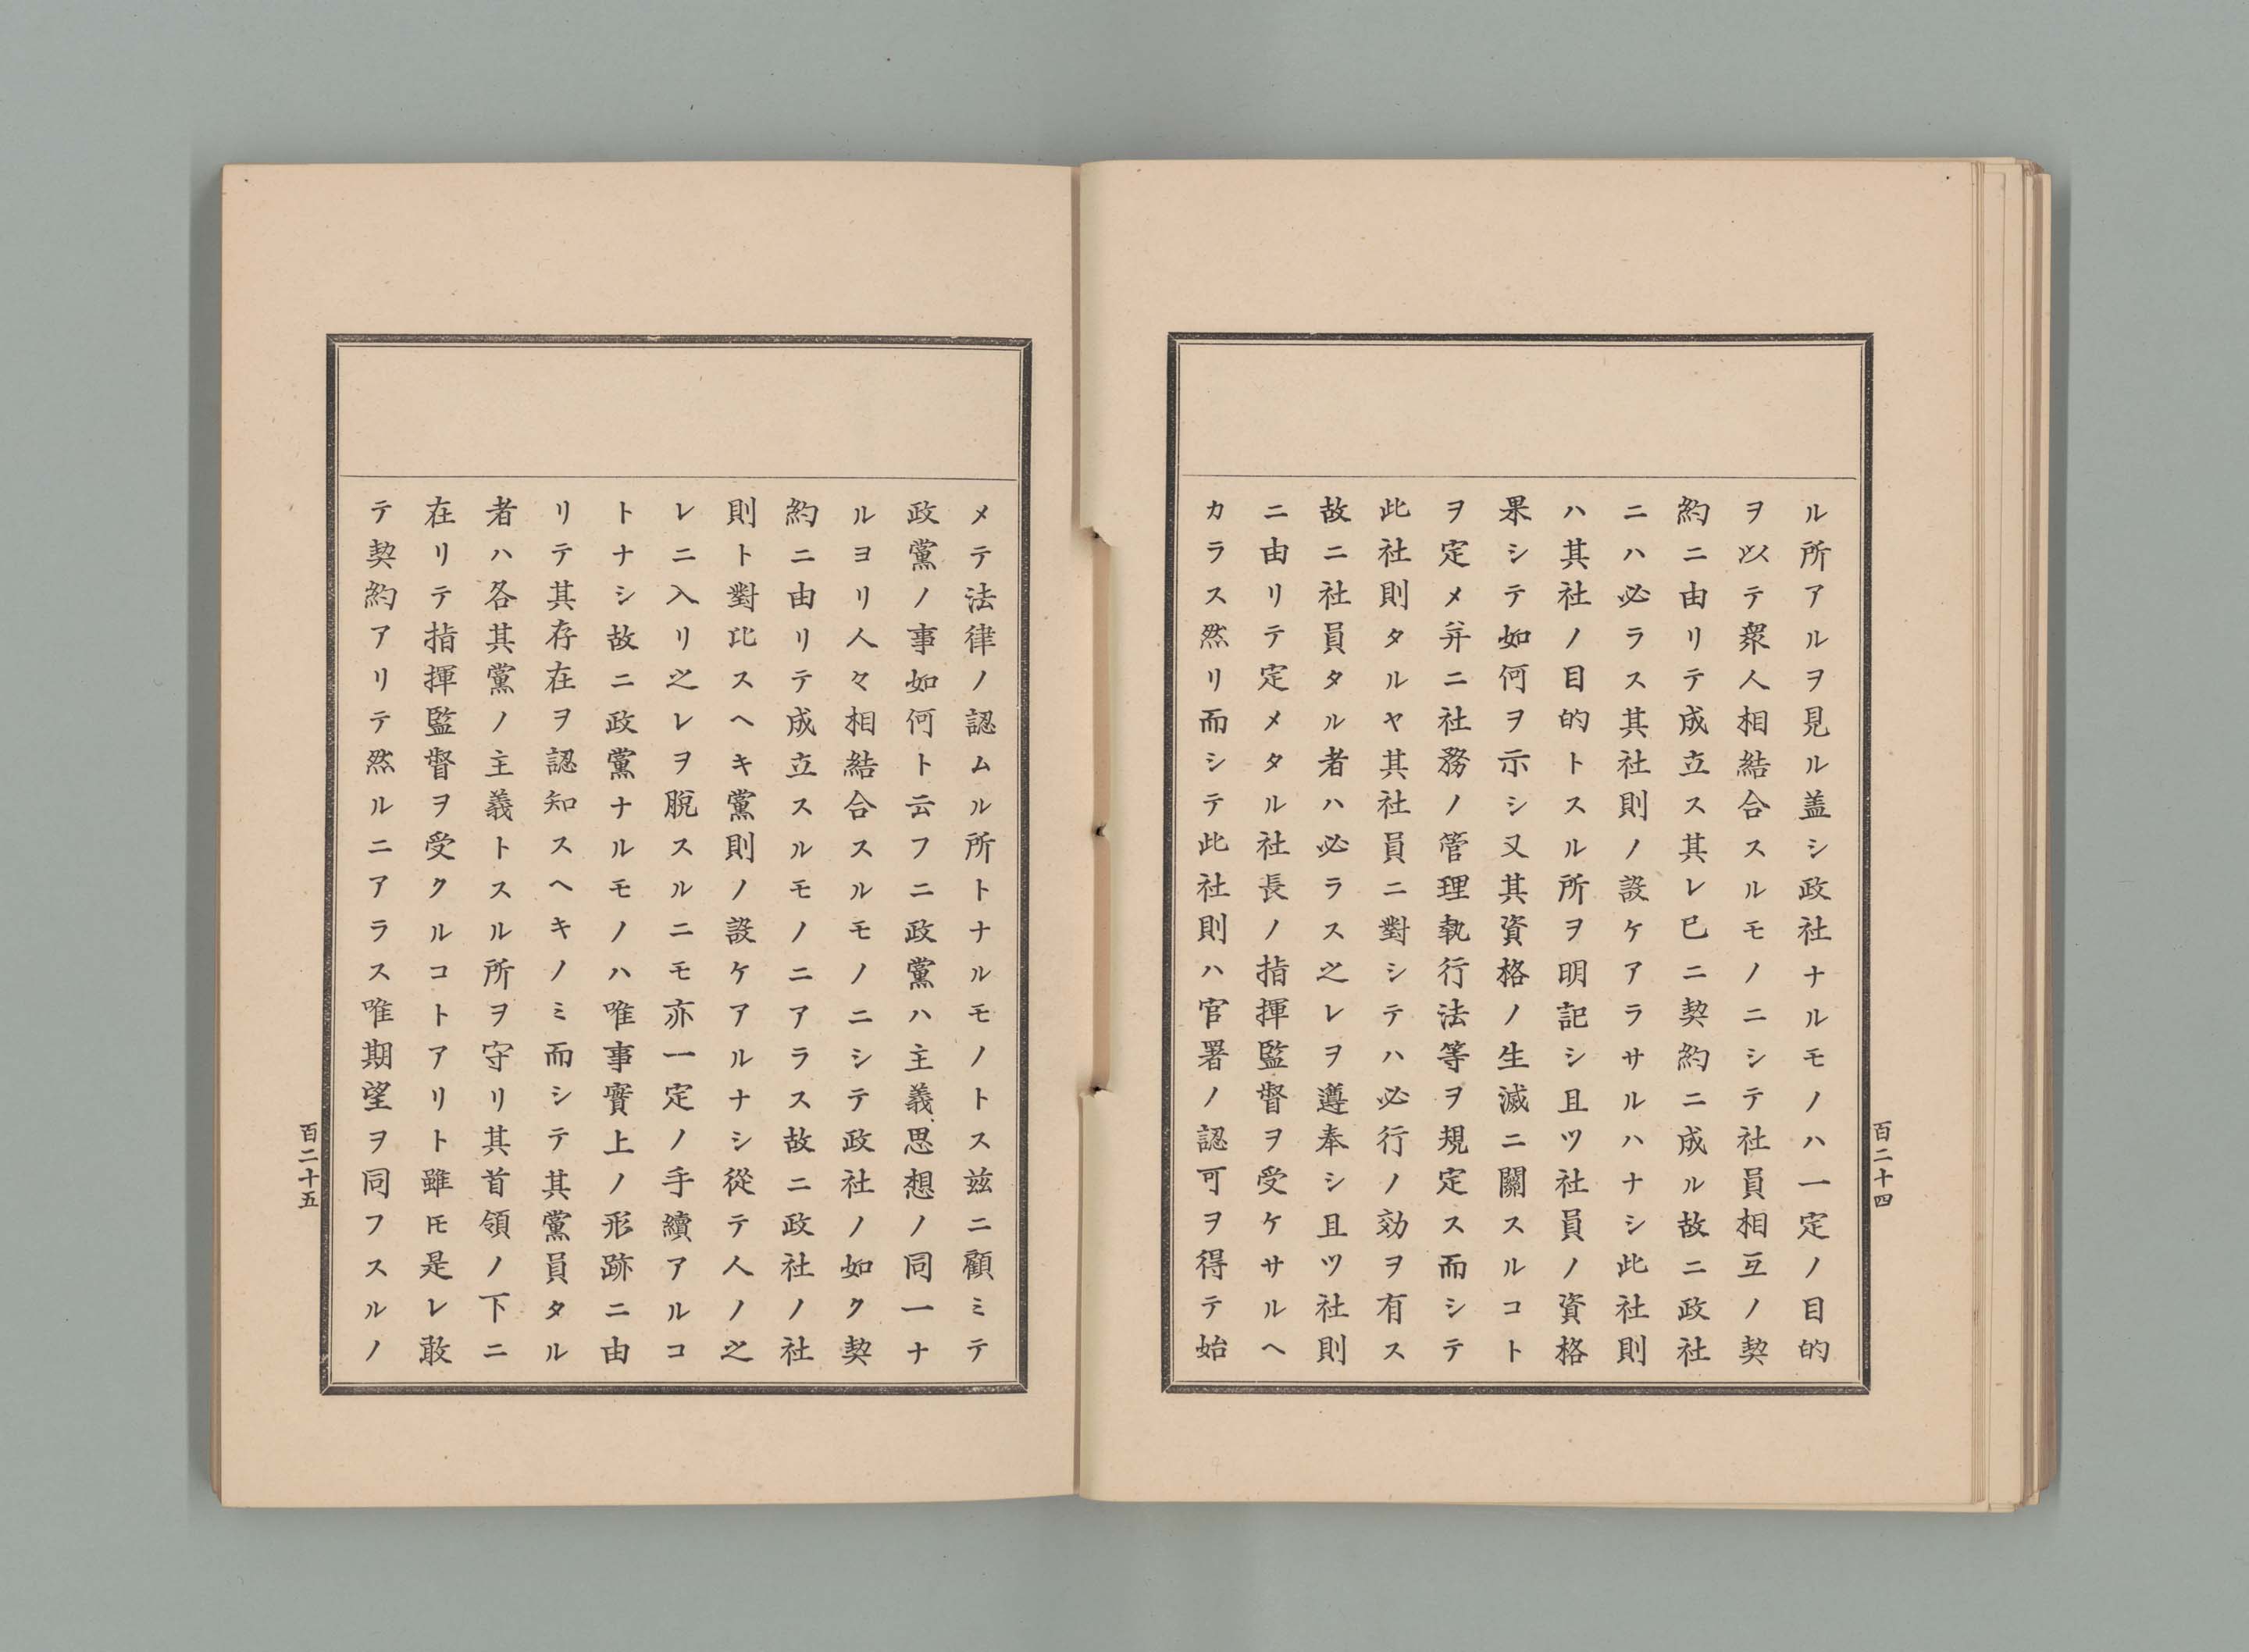 ル所アルヲ見ル盖シ政社ナルモノハ一定ノ目的
ヲ以テ衆人相結合スルモノニシテ社員相互ノ契
約ニ由リテ成立ス其レ已ニ契約ニ成ル故ニ政社
ニハ必ラス其社則ノ設ケアラサルハナシ此社則
ハ其社ノ目的トスル所ヲ明記シ且ツ社員ノ資格
果シテ如何ヲ示シ又其資格ノ生滅ニ關スルコト
ヲ定メ并ニ社務ノ管理執行法等ヲ規定ス而シテ
此社則タルヤ其社員ニ對シテハ必行ノ効ヲ有ス
故ニ社員タル者ハ必ラス之レヲ遵奉シ且ツ社則
ニ由リテ定メタル社長ノ指揮監督ヲ受ケサルヘ
カラス然リ而シテ此社則ハ官署ノ認可ヲ得テ始
百二十四
メテ法律ノ認ムル所トナルモノトス茲ニ顧ミテ
政黨ノ事如何ト云フニ政黨ハ主義思想ノ同一ナ
ルヨリ人々相結合スルモノニシテ政社ノ如ク契
約ニ由リテ成立スルモノニアラス故ニ政社ノ社
則ト對比スヘキ黨則ノ設ケアルナシ從テ人ノ之
レニ入リ之レヲ脫スルニモ亦一定ノ手續アルコ
トナシ故ニ政黨ナルモノハ唯事實上ノ形跡ニ由
リテ其存在ヲ認知スヘキノミ而シテ其黨員タル
者ハ各其黨ノ主義トスル所ヲ守リ其首領ノ下ニ
在リテ指揮監督ヲ受クルコトアリト雖𪜈是レ敢
テ契約アリテ然ルニアラス唯期望ヲ同フスルノ
百二十五